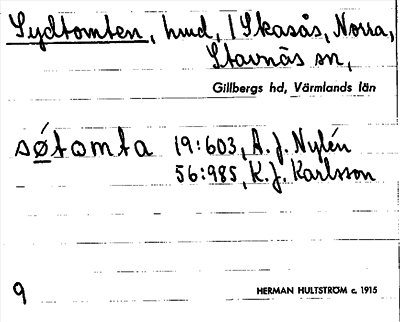 Sydtomten, hmd, / Skasås, Norra,
Stavnäs sn,
Gillbergs hd, Värmlands län
sǿtomta 19:603, A. J. Nylén
56:985, K. J. Karlsson
9
HERMAN HULTSTRÖM c. 1915